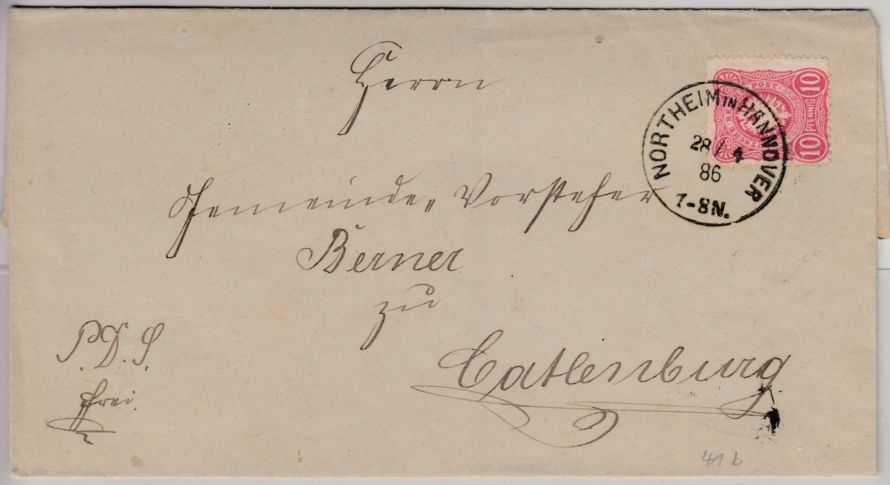 Herrn
10 PFENNIG 10
NORTHEIM IN HANNOVER
28/4
86
7-8N.
Gemeinde-Vorsteher
Berner
zu
P.D.S.
frei.
Catlenburg
41 b